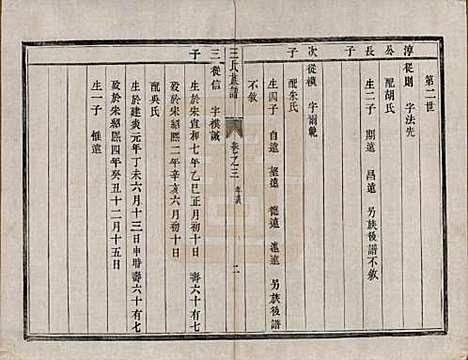 第二世
淳 從則 字法先
公 配胡氏
長 生二子 則遠 昌遠 另族後譜不敘
子
次 從橫 字爾範
子 配朱氏
生四子 自遠 望遠 龍遠 進遠 另族後譜
不敘
王氏族譜 卷之三 二
三 從信 字樸誠
子 生於宋宣和七年乙巳正月初十日 壽六十有七
殁於宋紹熙二年辛亥六月初十日
配吳氏
生於建炎元年丁未六月十三日申時壽六十有七
殁於宋紹熙四年癸丑十二月十五日
生一子 惟遠